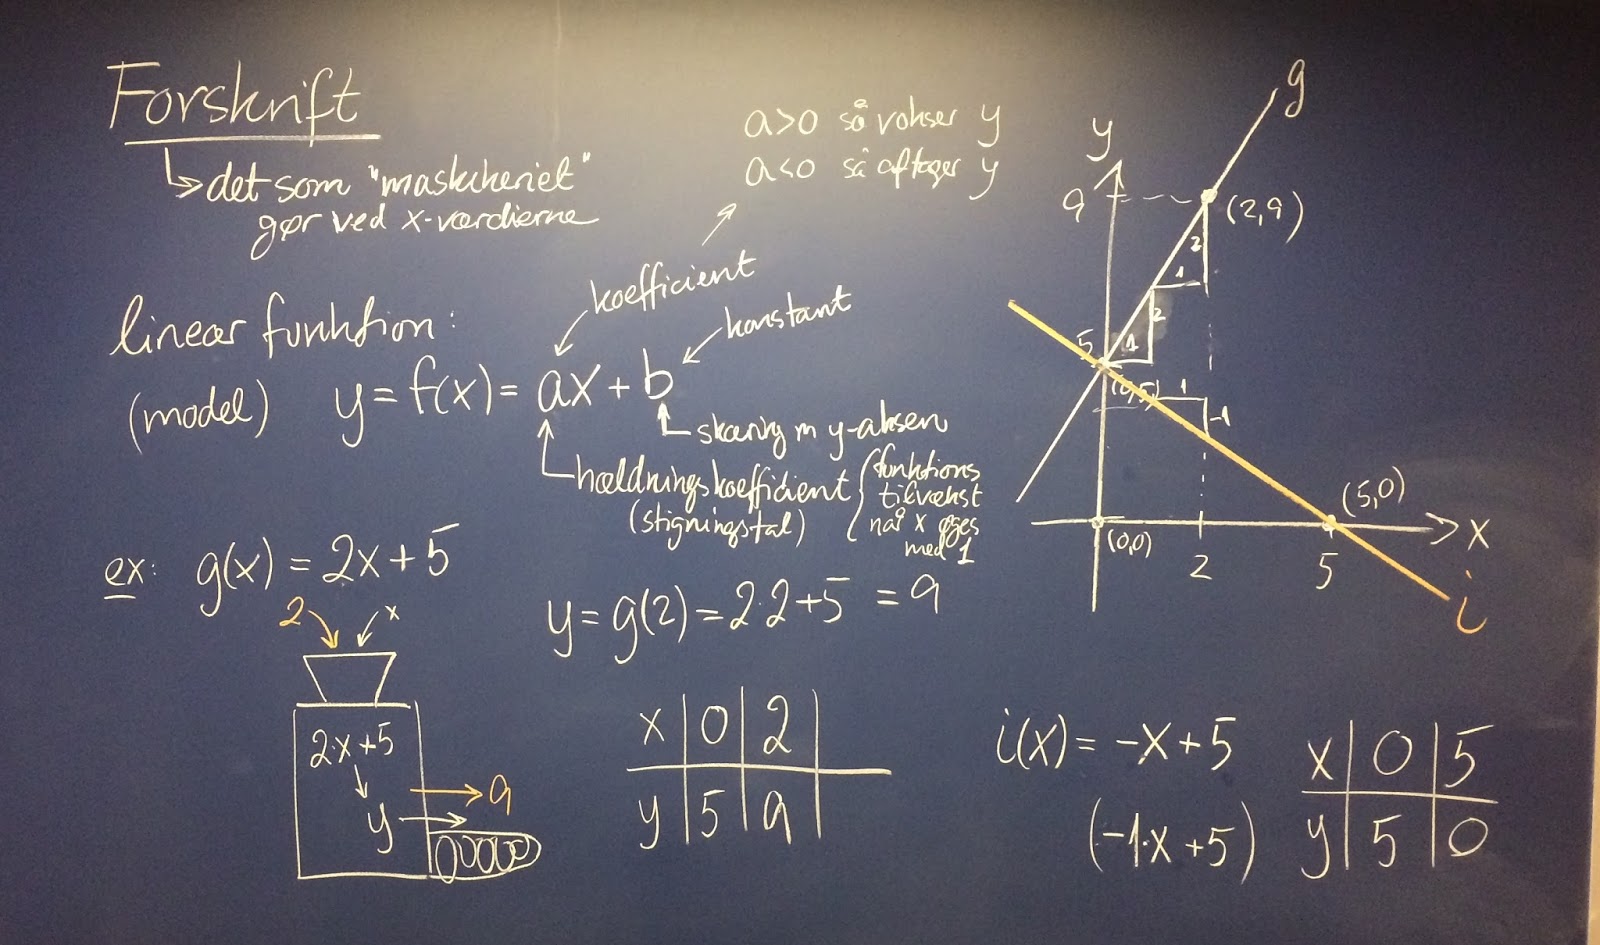 Forskrift
det som "maskineriet"
gør ved x-værdierne
a>0 så vokser y
a<0 så aftager y
koefficient
konstant
lineær funktion:
(model) y = f(x) = ax + b
skæring m y-aksen
hældningskoefficient
(stigningstal)
funktions
tilvækst
når x øges
med 1
ex: g(x) = 2x + 5
2 x
2·x + 5
y
9
y = g(2) = 2·2+5 = 9
x 0 2
y 5 9
g
y
9
(2,9)
2
1
2
1
5
(0,5)
1
-1
(5,0)
(0,0)
2
5
x
i
i(x) = -x + 5
(-1·x + 5)
x 0 5
y 5 0